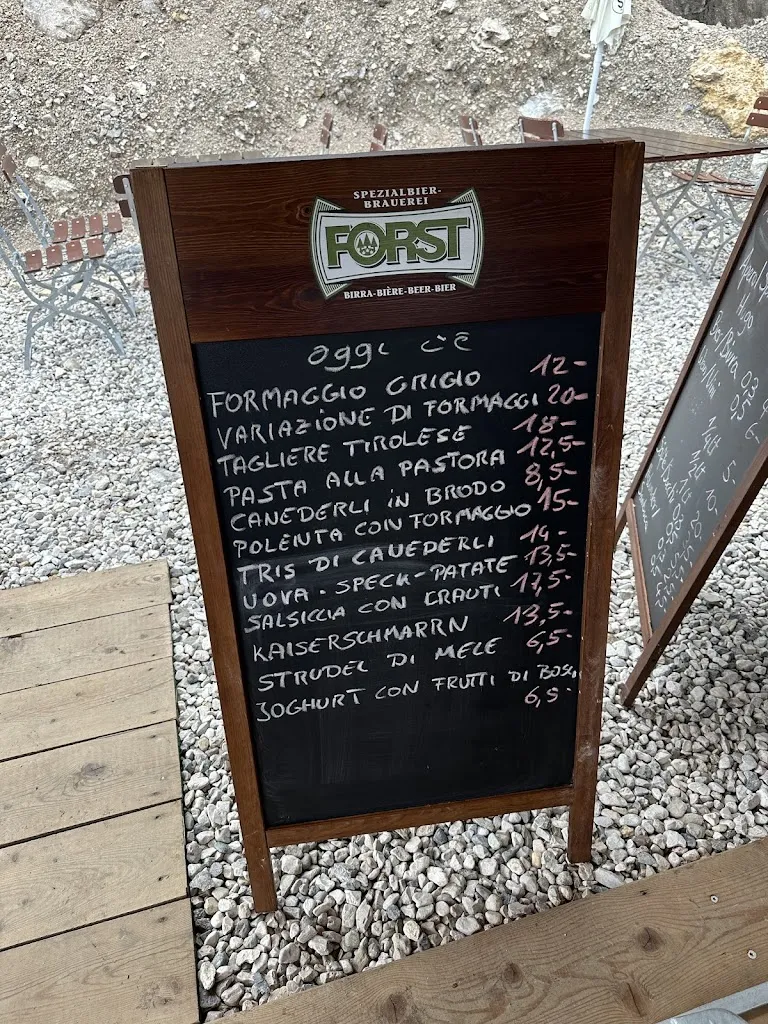 SPEZIALBIER-
BRAUEREI
FORST
BIRRA-BIÈRE-BEER-BIER
oggi c'è
FORMAGGIO GRIGIO 12-
VARIAZIONE DI FORMAGGI 20-
TAGLIERE TIROLESE 18-
PASTA ALLA PASTORA 12,5-
CANEDERLI iN BRODO 8,5-
POLENTA CON FORMAGGIO 15-
TRIS DI CANEDERLI 14-
UOVA - SPECK - PATATE 13,5-
SALSICCIA CON CRAUTI 17,5-
KAISERSCHMARRN 13,5-
STRUDEL DI MELE 6,5-
JOGHURT CON FRUTTI DI BOSCH
6,5-
Hugo